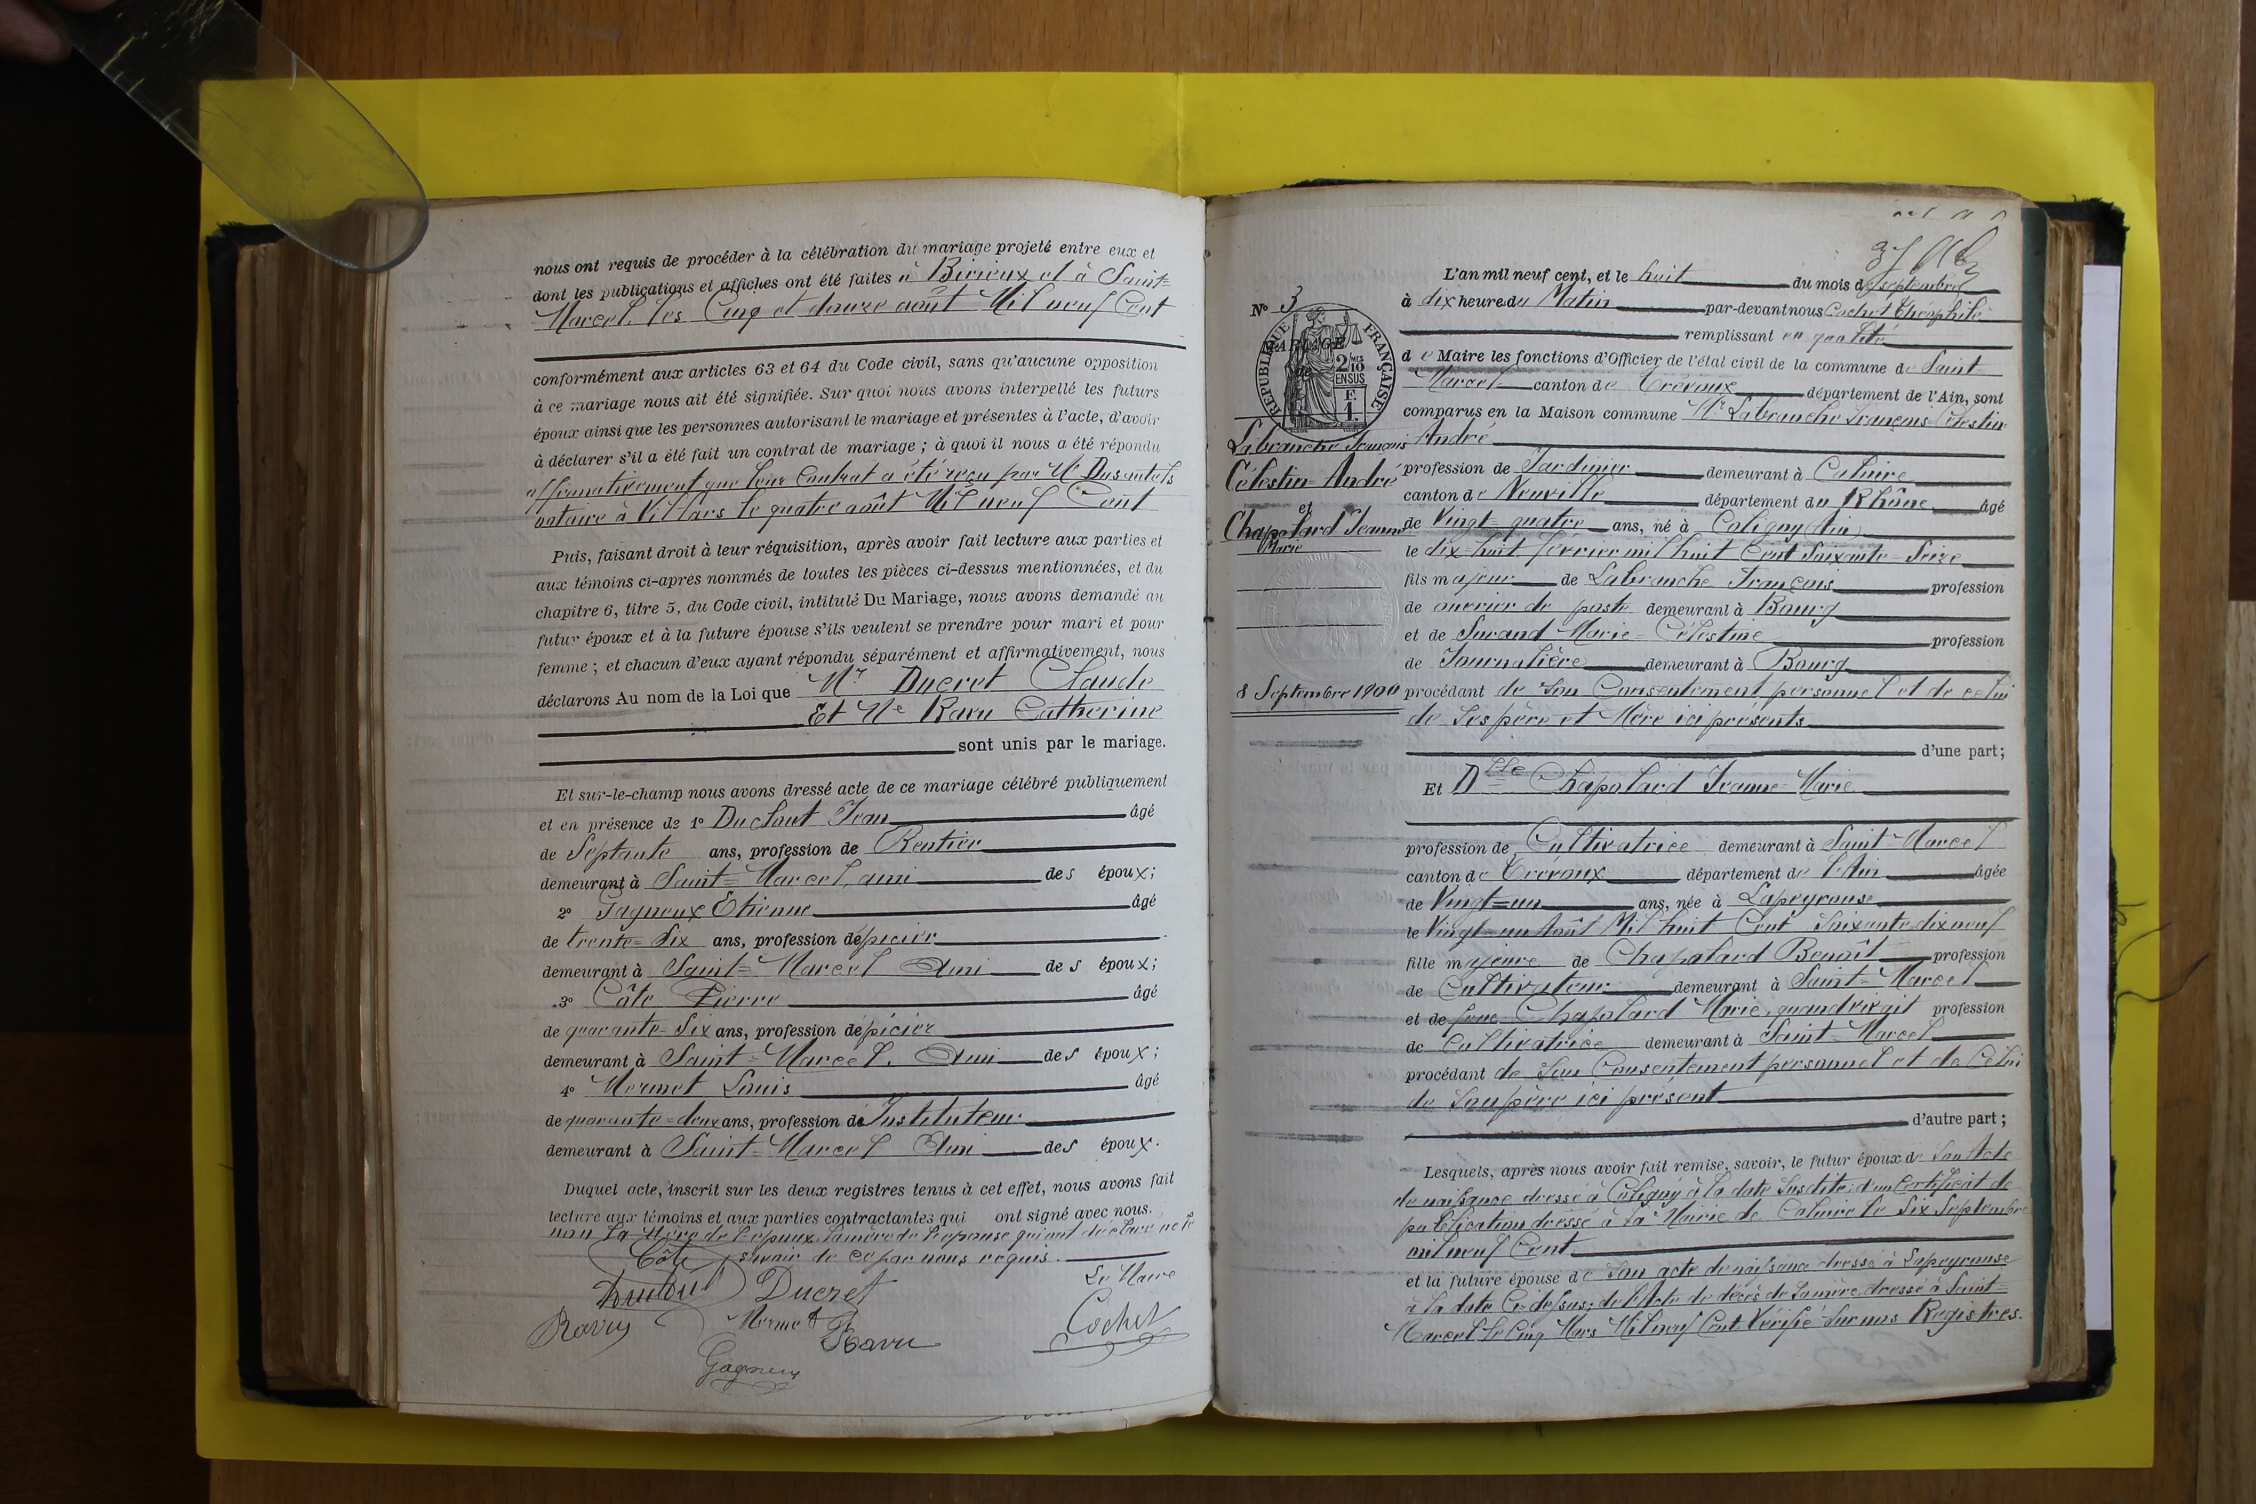 nous ont requis de procéder à la célébration du mariage projeté entre eux et
dont les publications et affiches ont été faites à Birieux et à Saint=
Marcel, les Cinq et douze août Mil neuf Cent
conformément aux articles 63 et 64 du Code civil, sans qu'aucune opposition
à ce mariage nous ait été signifiée. Sur quoi nous avons interpellé les futurs
époux ainsi que les personnes autorisant le mariage et présentes à l'acte, d'avoir
à déclarer s'il a été fait un contrat de mariage ; à quoi il nous a été répondu
affirmativement que leur Contrat a été reçu par Me Dusautels
notaire à Villars le quatre août Mil neuf Cent
Puis, faisant droit à leur réquisition, après avoir fait lecture aux parties et
aux témoins ci-après nommés de toutes les pièces ci-dessus mentionnées, et du
chapitre 6, titre 5, du Code civil, intitulé Du Mariage, nous avons demandé au
futur époux et à la future épouse s'ils veulent se prendre pour mari et pour
femme ; et chacun d'eux ayant répondu séparément et affirmativement, nous
déclarons Au nom de la Loi que Mr Ducret Claude
Et Mle Ravu Catherine
sont unis par le mariage.
Et sur-le-champ nous avons dressé acte de ce mariage célébré publiquement
et en présence de 1º Duclout Jean âgé
de Septante ans, profession de Rentier
demeurant à Saint=Marcel, ami des époux;
2º Gagneux Etienne âgé
de trente=Six ans, profession d'épicier
demeurant à Saint=Marcel Ami des époux;
3º Côte Pierre âgé
de quarante-Six ans, profession d'épicier
demeurant à Saint=Marcel. Ami des époux;
4º Mermet Louis âgé
de quarante=deux ans, profession de Instituteur
demeurant à Saint=Marcel Ami des époux.
Duquel acte, inscrit sur les deux registres tenus à cet effet, nous avons fait
lecture aux témoins et aux parties contractantes qui ont signé avec nous.
non la Mère de l'époux, la mère de l'épouse qui ont déclaré ne le
Côte savoir de ce par nous requis.
Duclout Ducret Le Maire
Ravu Mermet Ravu Cochet
Gagneux
L'an mil neuf cent, et le huit du mois de septembre
Nº 3
à dix heures du Matin par-devant nous Cochet Théophile
remplissant en qualité
de Maire les fonctions d'Officier de l'état civil de la commune de Saint
Marcel canton de Trévoux département de l'Ain, sont
comparus en la Maison commune Mr Labranche François Célestin
André
MARIAGE
de
RÉPUBLIQUE FRANÇAISE
2/10 EN SUS
F. 1.
Labranche François
Célestin André
et
Chapolard Jeanne
Marie
8 Septembre 1900
profession de Jardinier demeurant à Caluire
canton de Neuville département du Rhône âgé
de Vingt=quatre ans, né à Coligny (Ain)
le dix-huit février mil huit Cent Soixante-Seize
fils majeur de Labranche François profession
de ouvrier de poste demeurant à Bourg
et de Surand Marie=Célestine profession
de Journalière demeurant à Bourg
procédant de son Consentement personnel et de celui
de Ses père et Mère ici présents
d'une part;
Et Dlle Chapolard Jeanne=Marie
profession de Cultivatrice demeurant à Saint-Marcel
canton de Trévoux département de l'Ain âgée
de Vingt=un ans, née à Lapeyrouse
le Vingt=un Août Mil huit Cent Soixante dix neuf
fille majeure de Chapolard Benoît profession
de Cultivateur demeurant à Saint=Marcel
et de feue Chapolard Marie, quand vivait profession
de Cultivatrice demeurant à Saint=Marcel
procédant de Son Consentement personnel et de Celui
de Son père ici présent
d'autre part;
Lesquels, après nous avoir fait remise, savoir, le futur époux de Son Acte
de naissance dressé à Coligny à la date Susdite; d'un Certificat de
publication dressé à la Mairie de Caluire le Six Septembre
mil neuf Cent
et la future épouse de Son acte de naissance dressé à Lapeyrouse
à la date Ci-dessus; de l'Acte de décès de Sa mère dressé à Saint=
Marcel le Cinq Mars Mil neuf Cent. Vérifié Sur nos Registres.